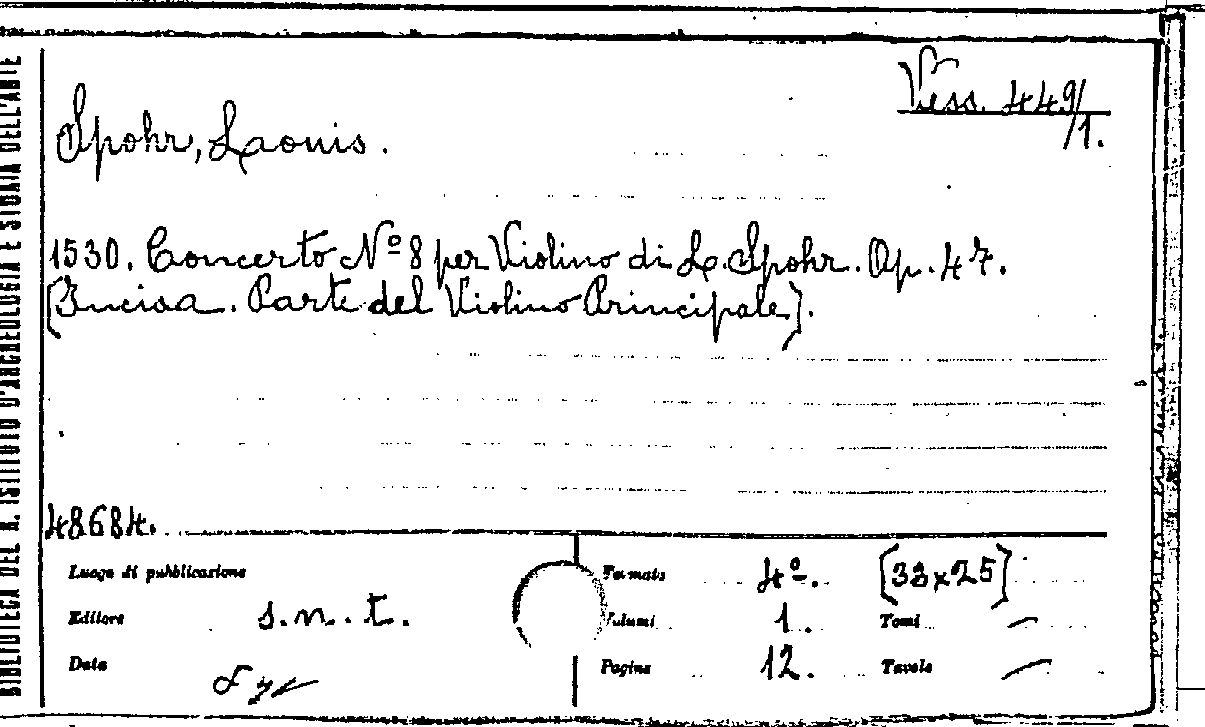 BIBLIOTECA DEL R. ISTITUTO D'ARCHEOLOGIA E STORIA DELL'ARTE
Vess. 449/1.
Spohr, Laouis.
1530. Concerto Nº 8 per Violino di L. Spohr. Op. 47.
[Incisa. Parte del Violino Principale].
48684.
Luogo di pubblicazione
Formato 4º. [33x25]
Editore s.n.t.
Volumi 1. Tomi —
Data
Pagine 12. Tavole —